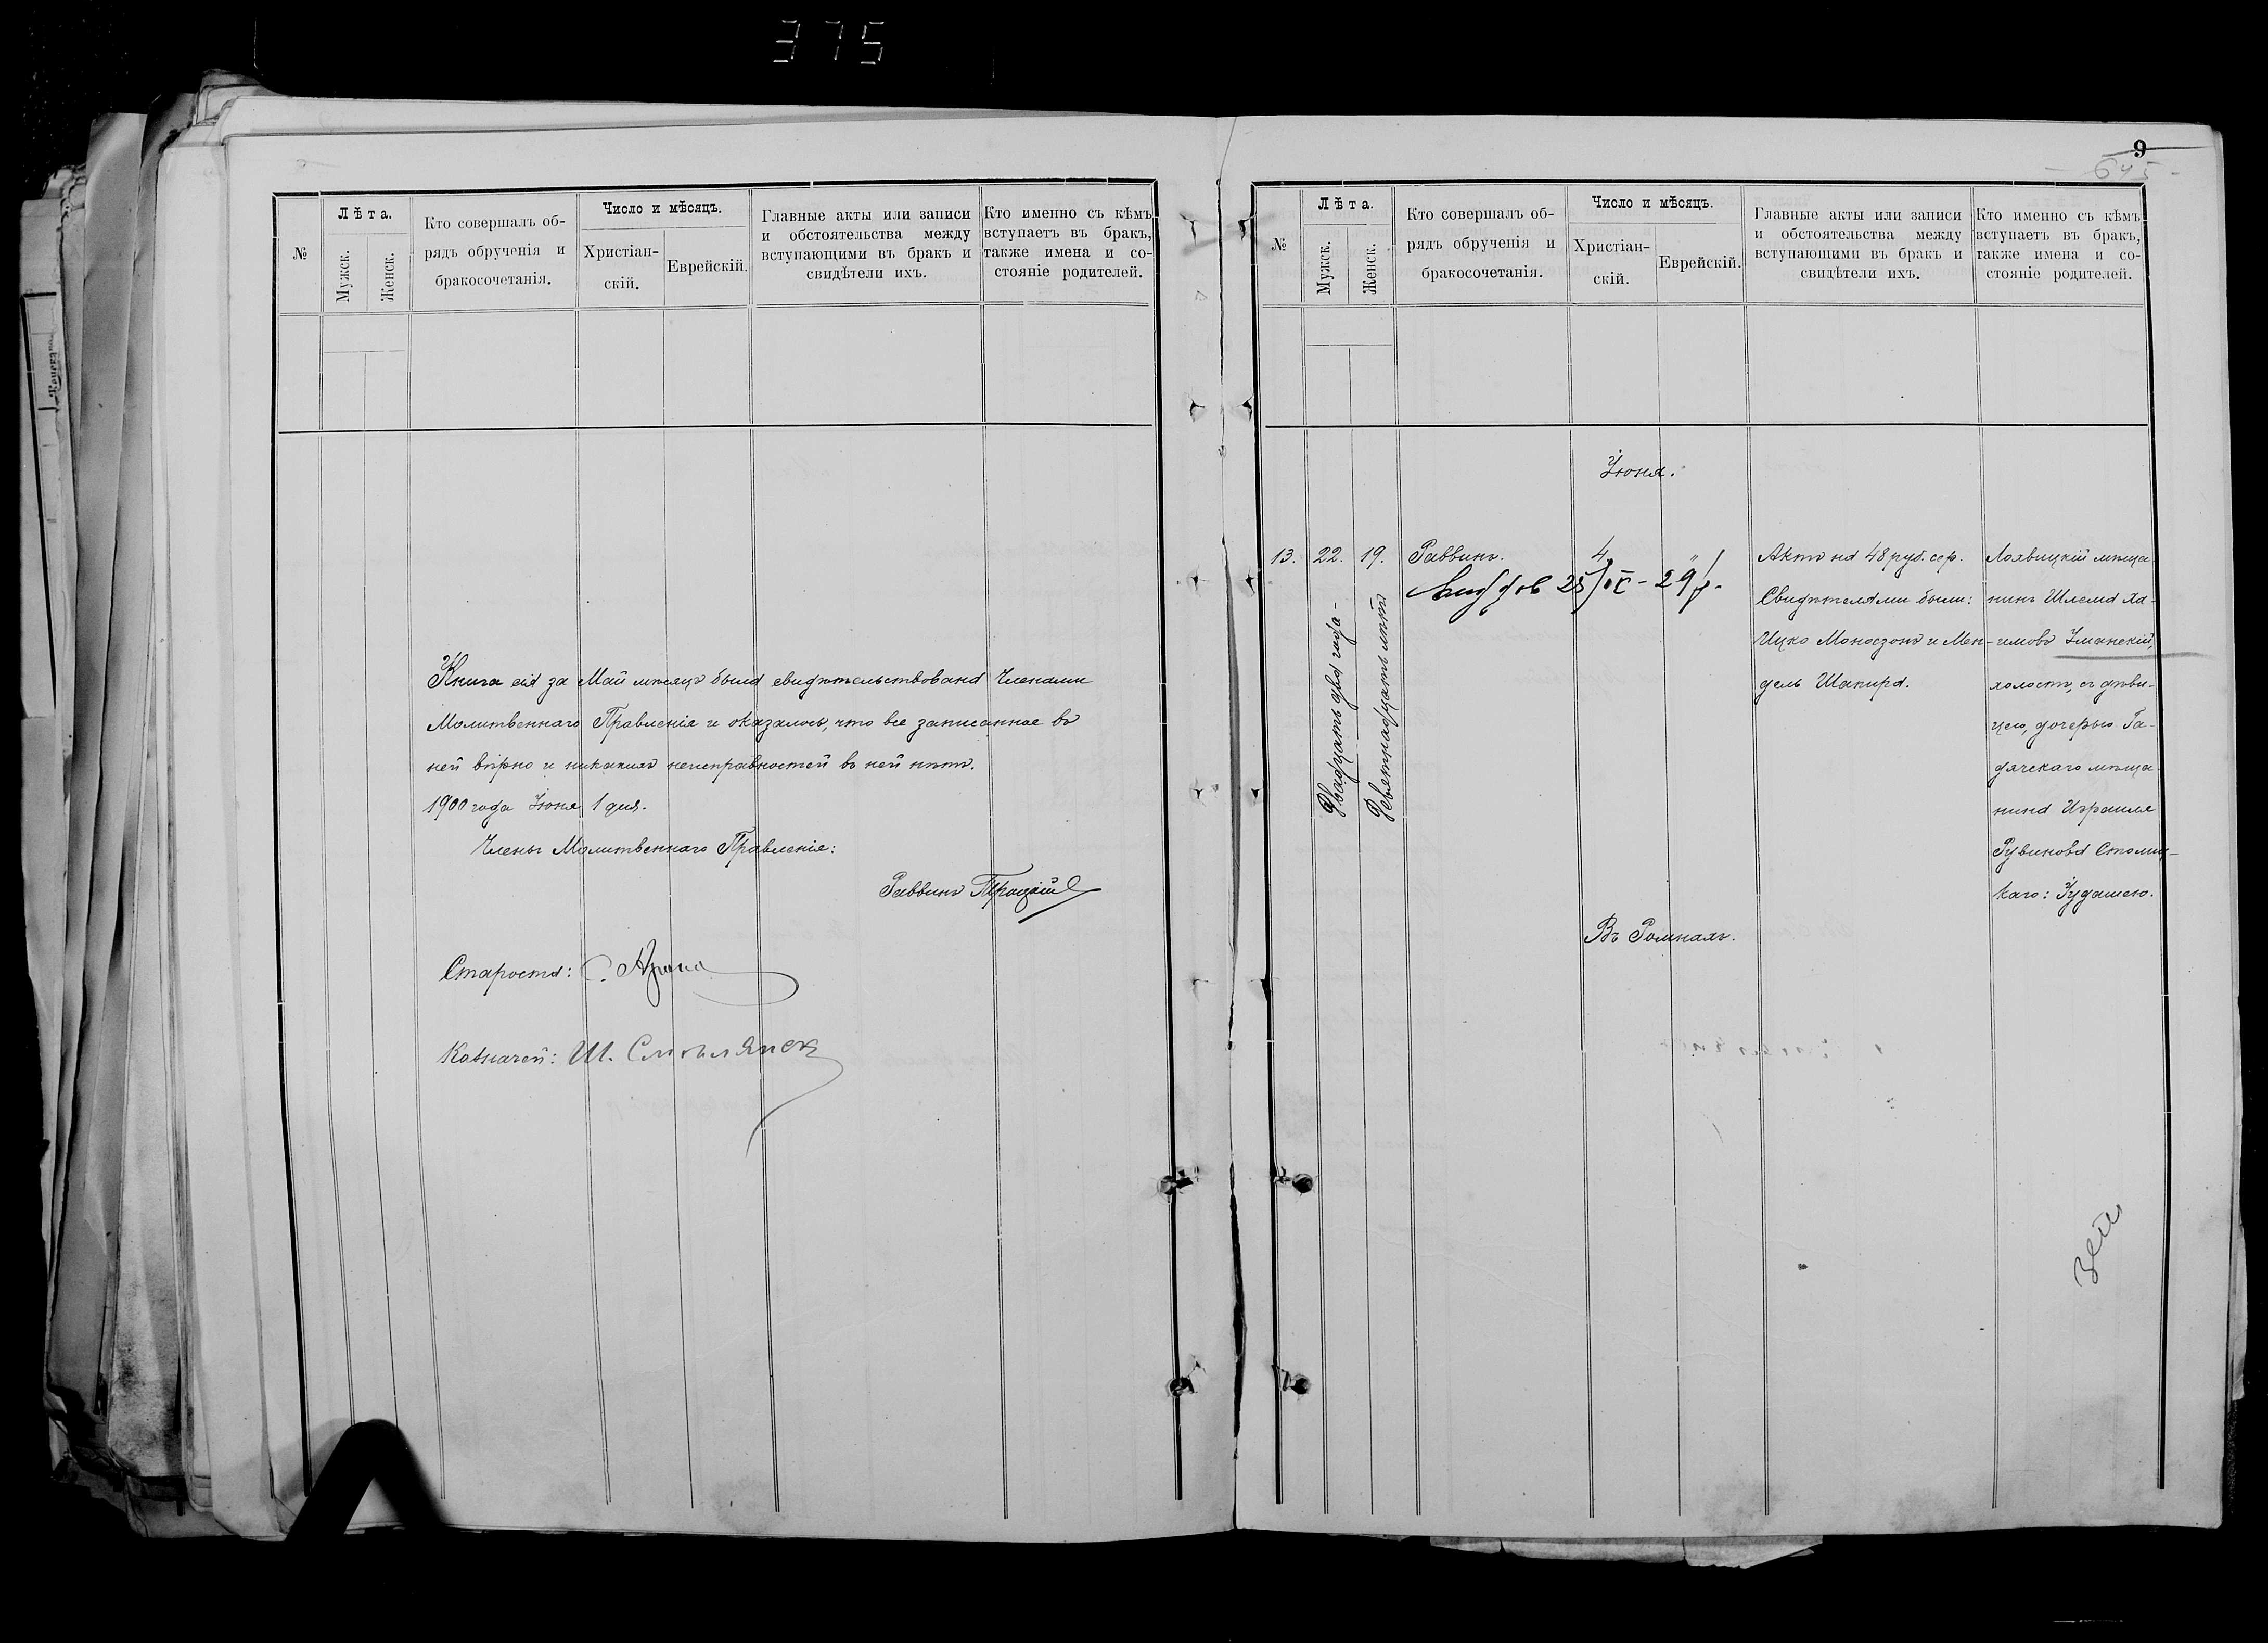 375
№
Лѣта.
Мужск.
Женск.
Кто совершалъ об-
рядъ обрученія и
бракосочетанія.
Число и мѣсяцъ.
Христіан-
скій.
Еврейскій.
Главные акты или записи
и обстоятельства между
вступающими въ бракъ и
свидѣтели ихъ.
Кто именно съ кѣмъ
вступаетъ въ бракъ,
также имена и со-
стояніе родителей.
Книга сія за Май мѣсяцъ была свидѣтельствована Членами
Молитвеннаго Правленія и оказалось, что все записанное въ
ней вѣрно и никакихъ неисправностей въ ней нѣтъ.
1900 года Іюня 1 дня.
Члены Молитвеннаго Правленія:
Раввинъ Троцкій
Староста:
Казначей: Ш. Смолянск
9
645
№
Лѣта.
Мужск.
Женск.
Кто совершалъ об-
рядъ обрученія и
бракосочетанія.
Число и мѣсяцъ.
Христіан-
скій.
Еврейскій.
Главные акты или записи
и обстоятельства между
вступающими въ бракъ и
свидѣтели ихъ.
Кто именно съ кѣмъ
вступаетъ въ бракъ,
также имена и со-
стояніе родителей.
Іюня.
13.
22.
Двадцать два года
19.
Девятнадцать лѣтъ
Раввинъ.
4
28/IX - 29 г.
Актъ на 48 руб. сер.
Свидѣтелями были:
Ицко Моносзонъ и Мен-
дель Шапиро.
Лохвицкій мѣща-
нинъ Шлема Ха-
имовъ Уманскій,
холостъ, съ дѣви-
цею, дочерью Га-
дячскаго мѣща-
нина Израиля
Рувинова Столиц-
каго: Гудашею.
Въ Ромнахъ.